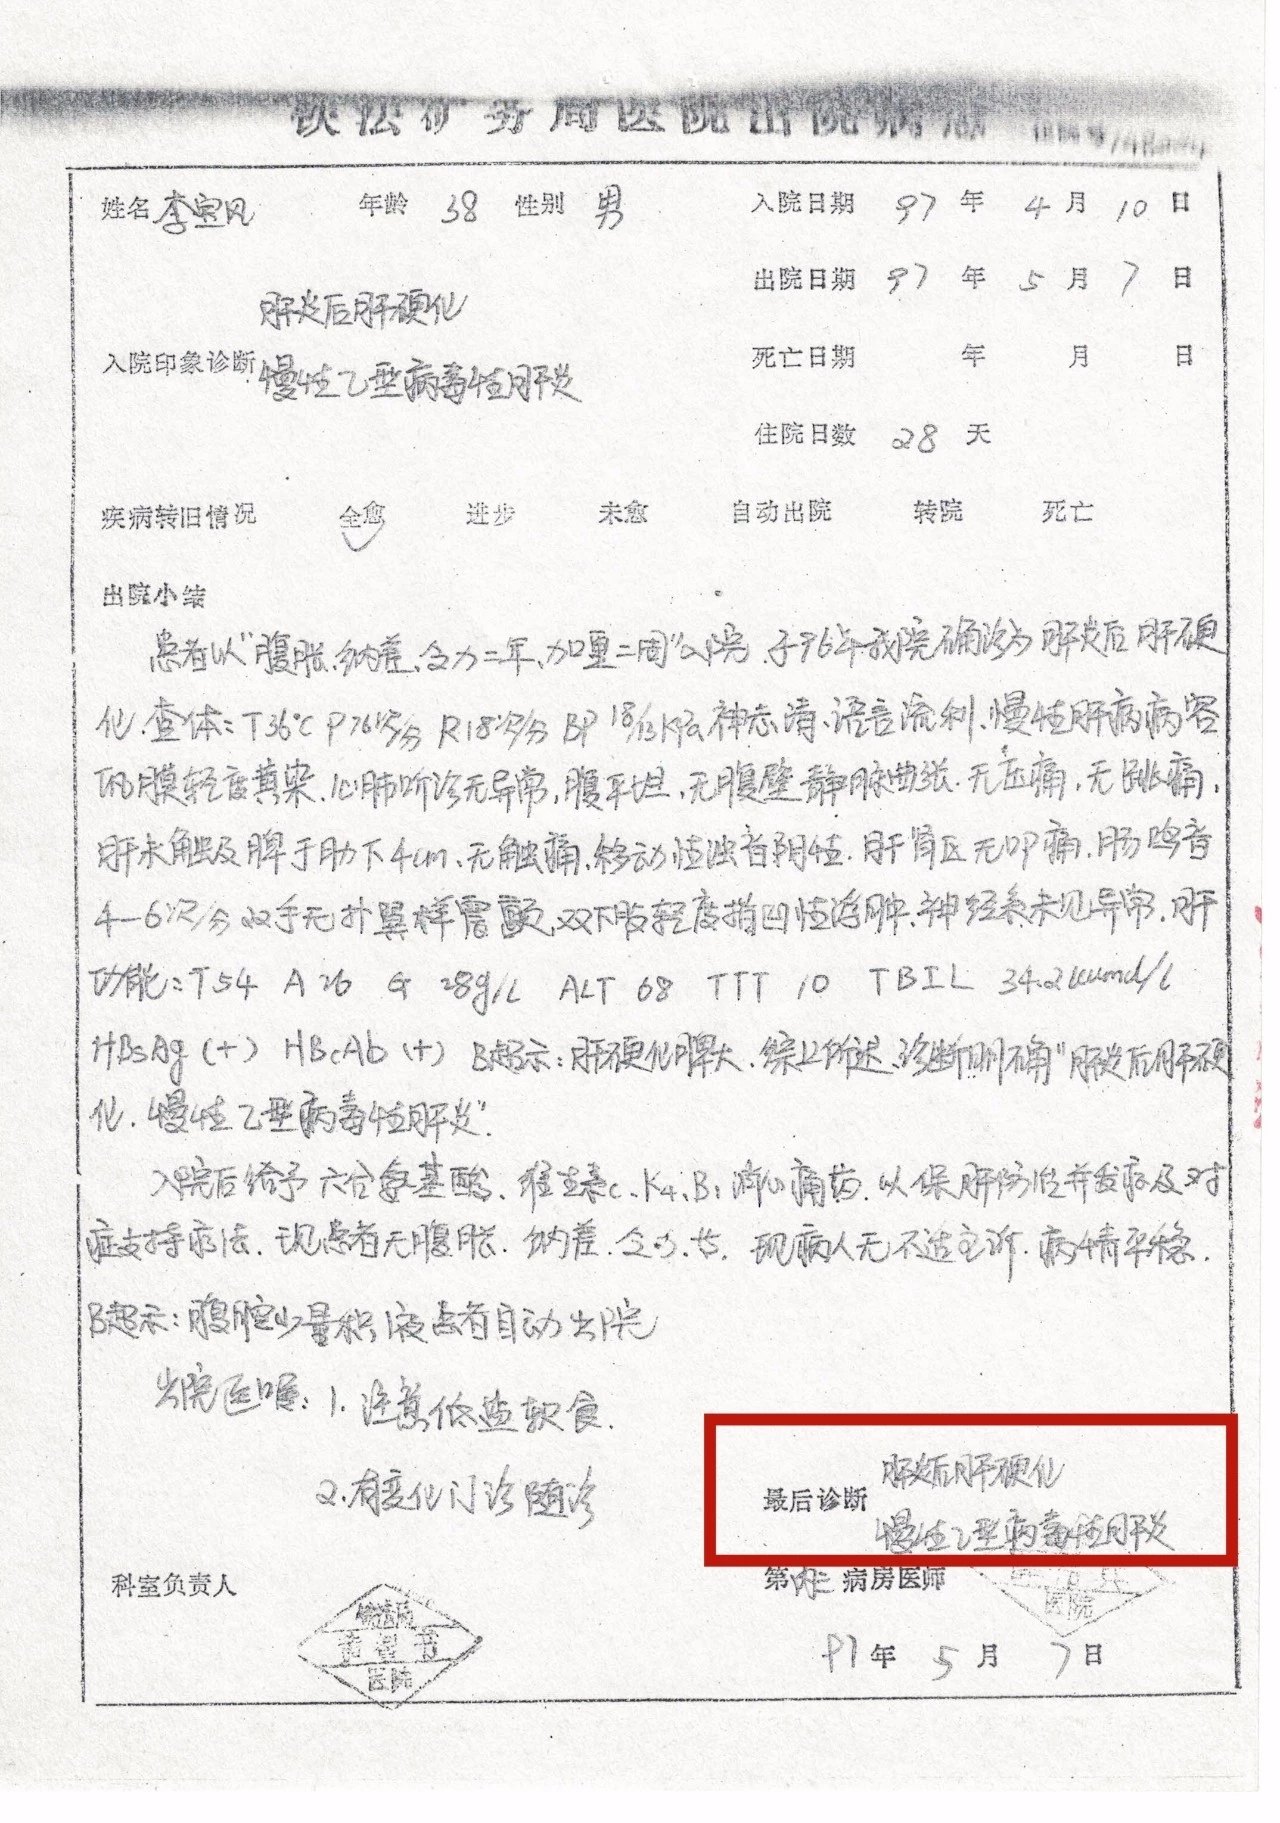 铁法矿务局医院出院病志
姓名 李宝凡 年龄 38 性别 男 入院日期 97 年 4 月 10 日
出院日期 97 年 5 月 7 日
肝炎后肝硬化
入院印象诊断 慢性乙型病毒性肝炎 死亡日期 年 月 日
住院日数 28 天
疾病转旧情况 全愈 进步 未愈 自动出院 转院 死亡
出院小结
患者以"腹胀、纳差、乏力二年,加重二周"入院.于96年我院确诊为肝炎后肝硬
化.查体:T36℃ P76次/分 R18次/分 BP 18/13KPa 神志清、语言流利、慢性肝病病容
巩膜轻度黄染.心肺听诊无异常,腹平坦,无腹壁静脉曲张.无压痛,无反跳痛,
肝未触及脾于肋下4cm、无触痛,移动性浊音阴性.肝肾区无叩痛,肠鸣音
4-6次/分双手无扑翼样震颤,双下肢轻度指凹性浮肿.神经系未见异常.肝
功能:T54 A 26 G 28g/L ALT 68 TTT 10 TBIL 34.2umol/L
HBsAg (+) HBcAb (+) B超示:肝硬化脾大.综上所述、诊断明确"肝炎后肝硬
化.慢性乙型病毒性肝炎".
入院后给予六合氨基酸、维生素c、K4、B1 消心痛药.以保肝防治并发症及对
症支持疗法.现患者无腹胀.纳差.乏力.现病人无不适主诉.病情平稳.
B超示:腹腔少量积液患者自动出院
出院医嘱:1.注意低盐软食.
2.有变化门诊随诊
肝炎后肝硬化
最后诊断
慢性乙型病毒性肝炎
科室负责人 第内二病房医师
铁法局
医院
医院
97 年 5 月 7 日